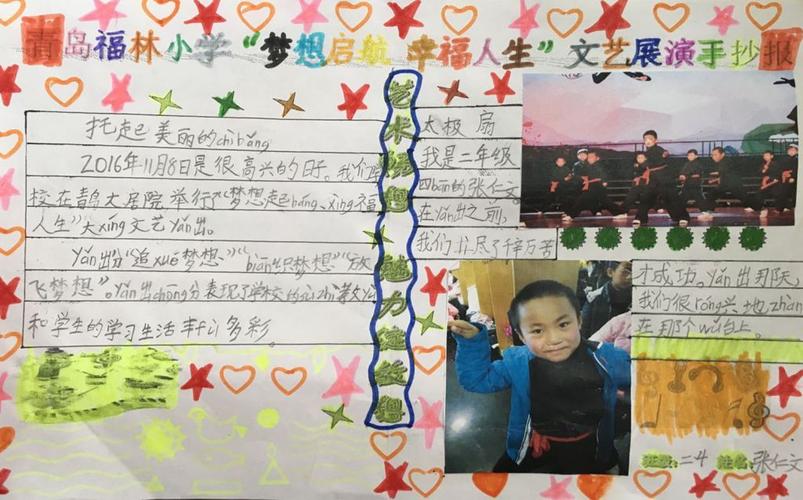 青岛福林小学“梦想启航 幸福人生”文艺展演手抄报
托起美丽的chì bǎng
2016年11月8日是很高兴的日子。我们
校在青岛大居院举行了“梦想起háng、xìng福
人生”大xíng文艺yǎn出。
Yǎn出分“追xué梦想、”“biān织梦想”“放
飞梦想”。Yǎn出chōng分表现了学校的
和学生的学习生活丰fù多彩。
艺术
魅力
太极扇
我是二年级
四bān的张仁文
在yǎn出之前,
我们历尽了千辛万苦
才成功。Yǎn出那天,
我们很róng兴地zhàn
在那个wǔ台上。
班级:二4 姓名:张仁文